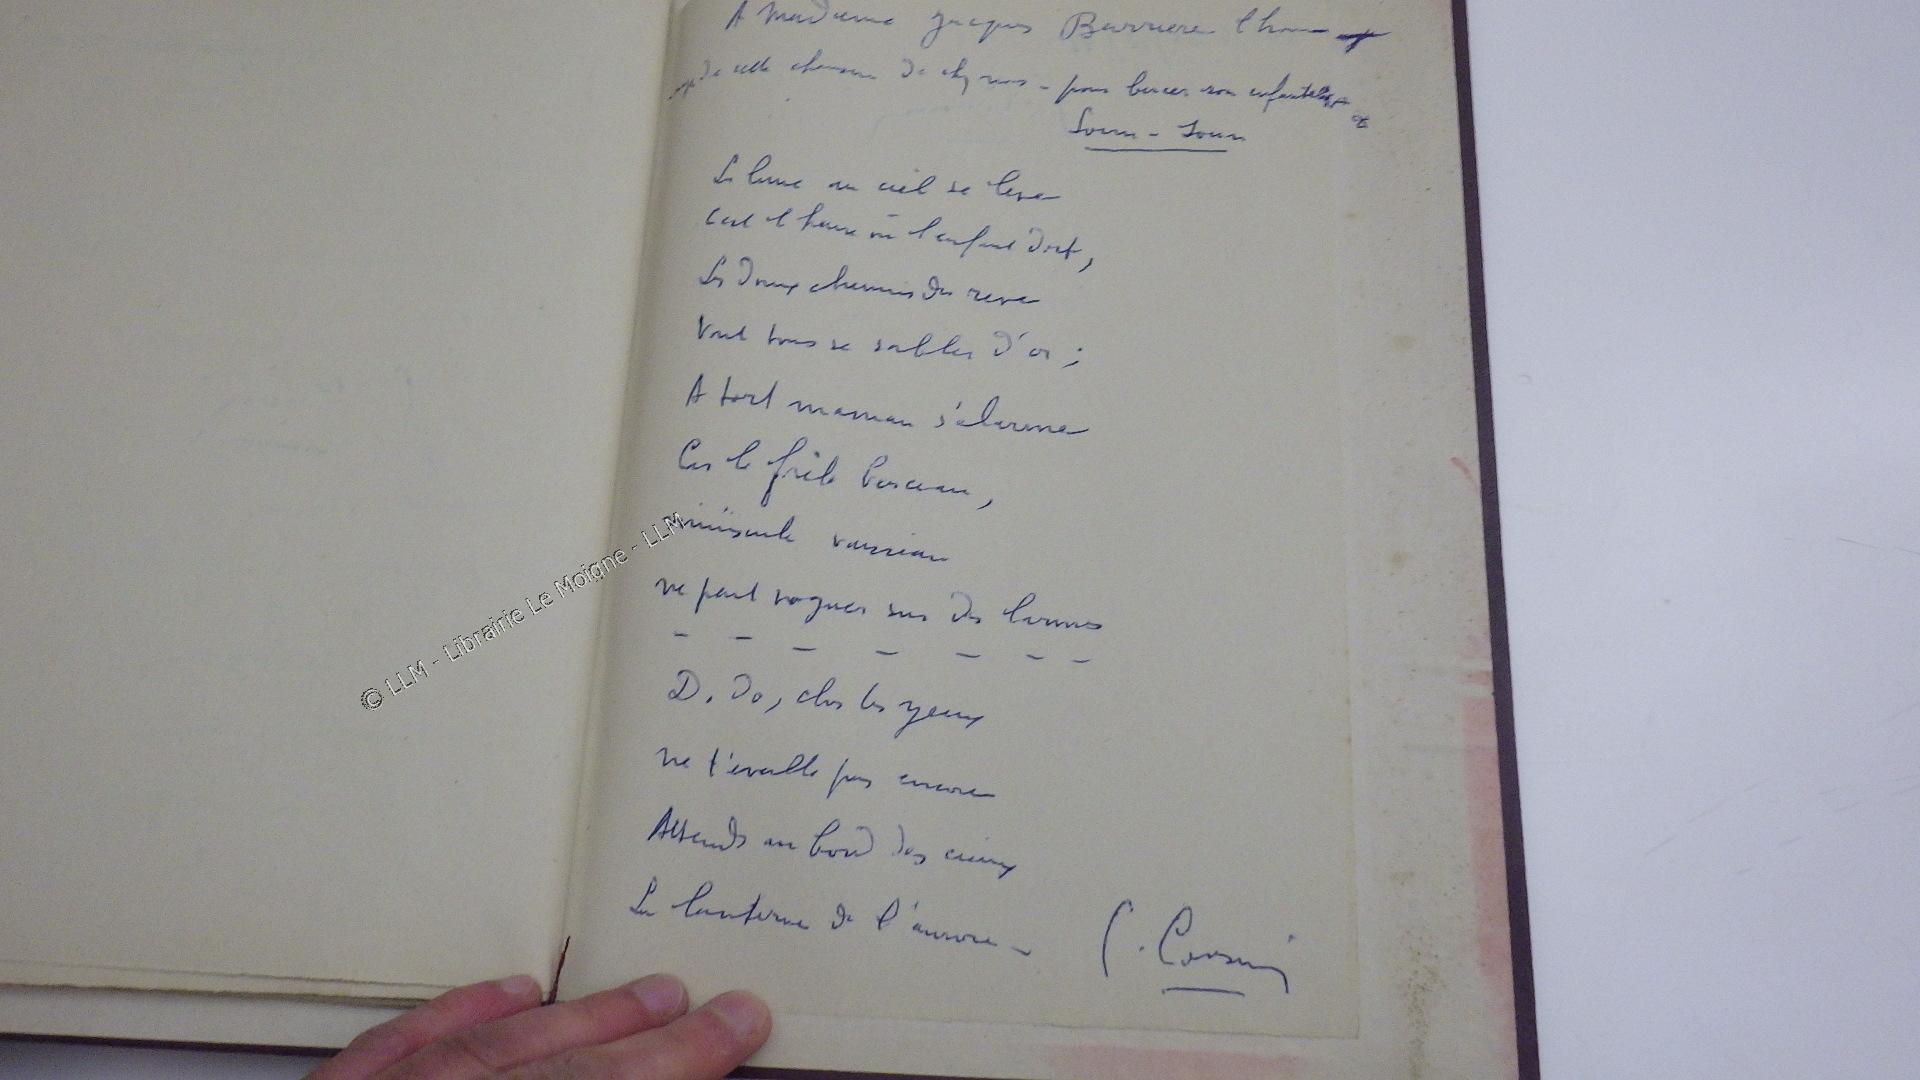 A Madame Jacques Barriere l'hom-
mage de cette chanson de chez nous - pour bercer son
Soun - Soun
La lune au ciel se leve
C'est l'heure où l'enfant dort,
Les doux chemins du reve
Vont tous se sabler d'or ;
A tort maman s'alarme
Car le frêle berceau,
minuscule vaisseau
ne peut voguer sur des larmes
D. do, clos les yeux
ne t'eveille pas encore
Attends au bord des cieux
La lanterne de l'aurore -
© LLM - Librairie Le Moigne - LLM